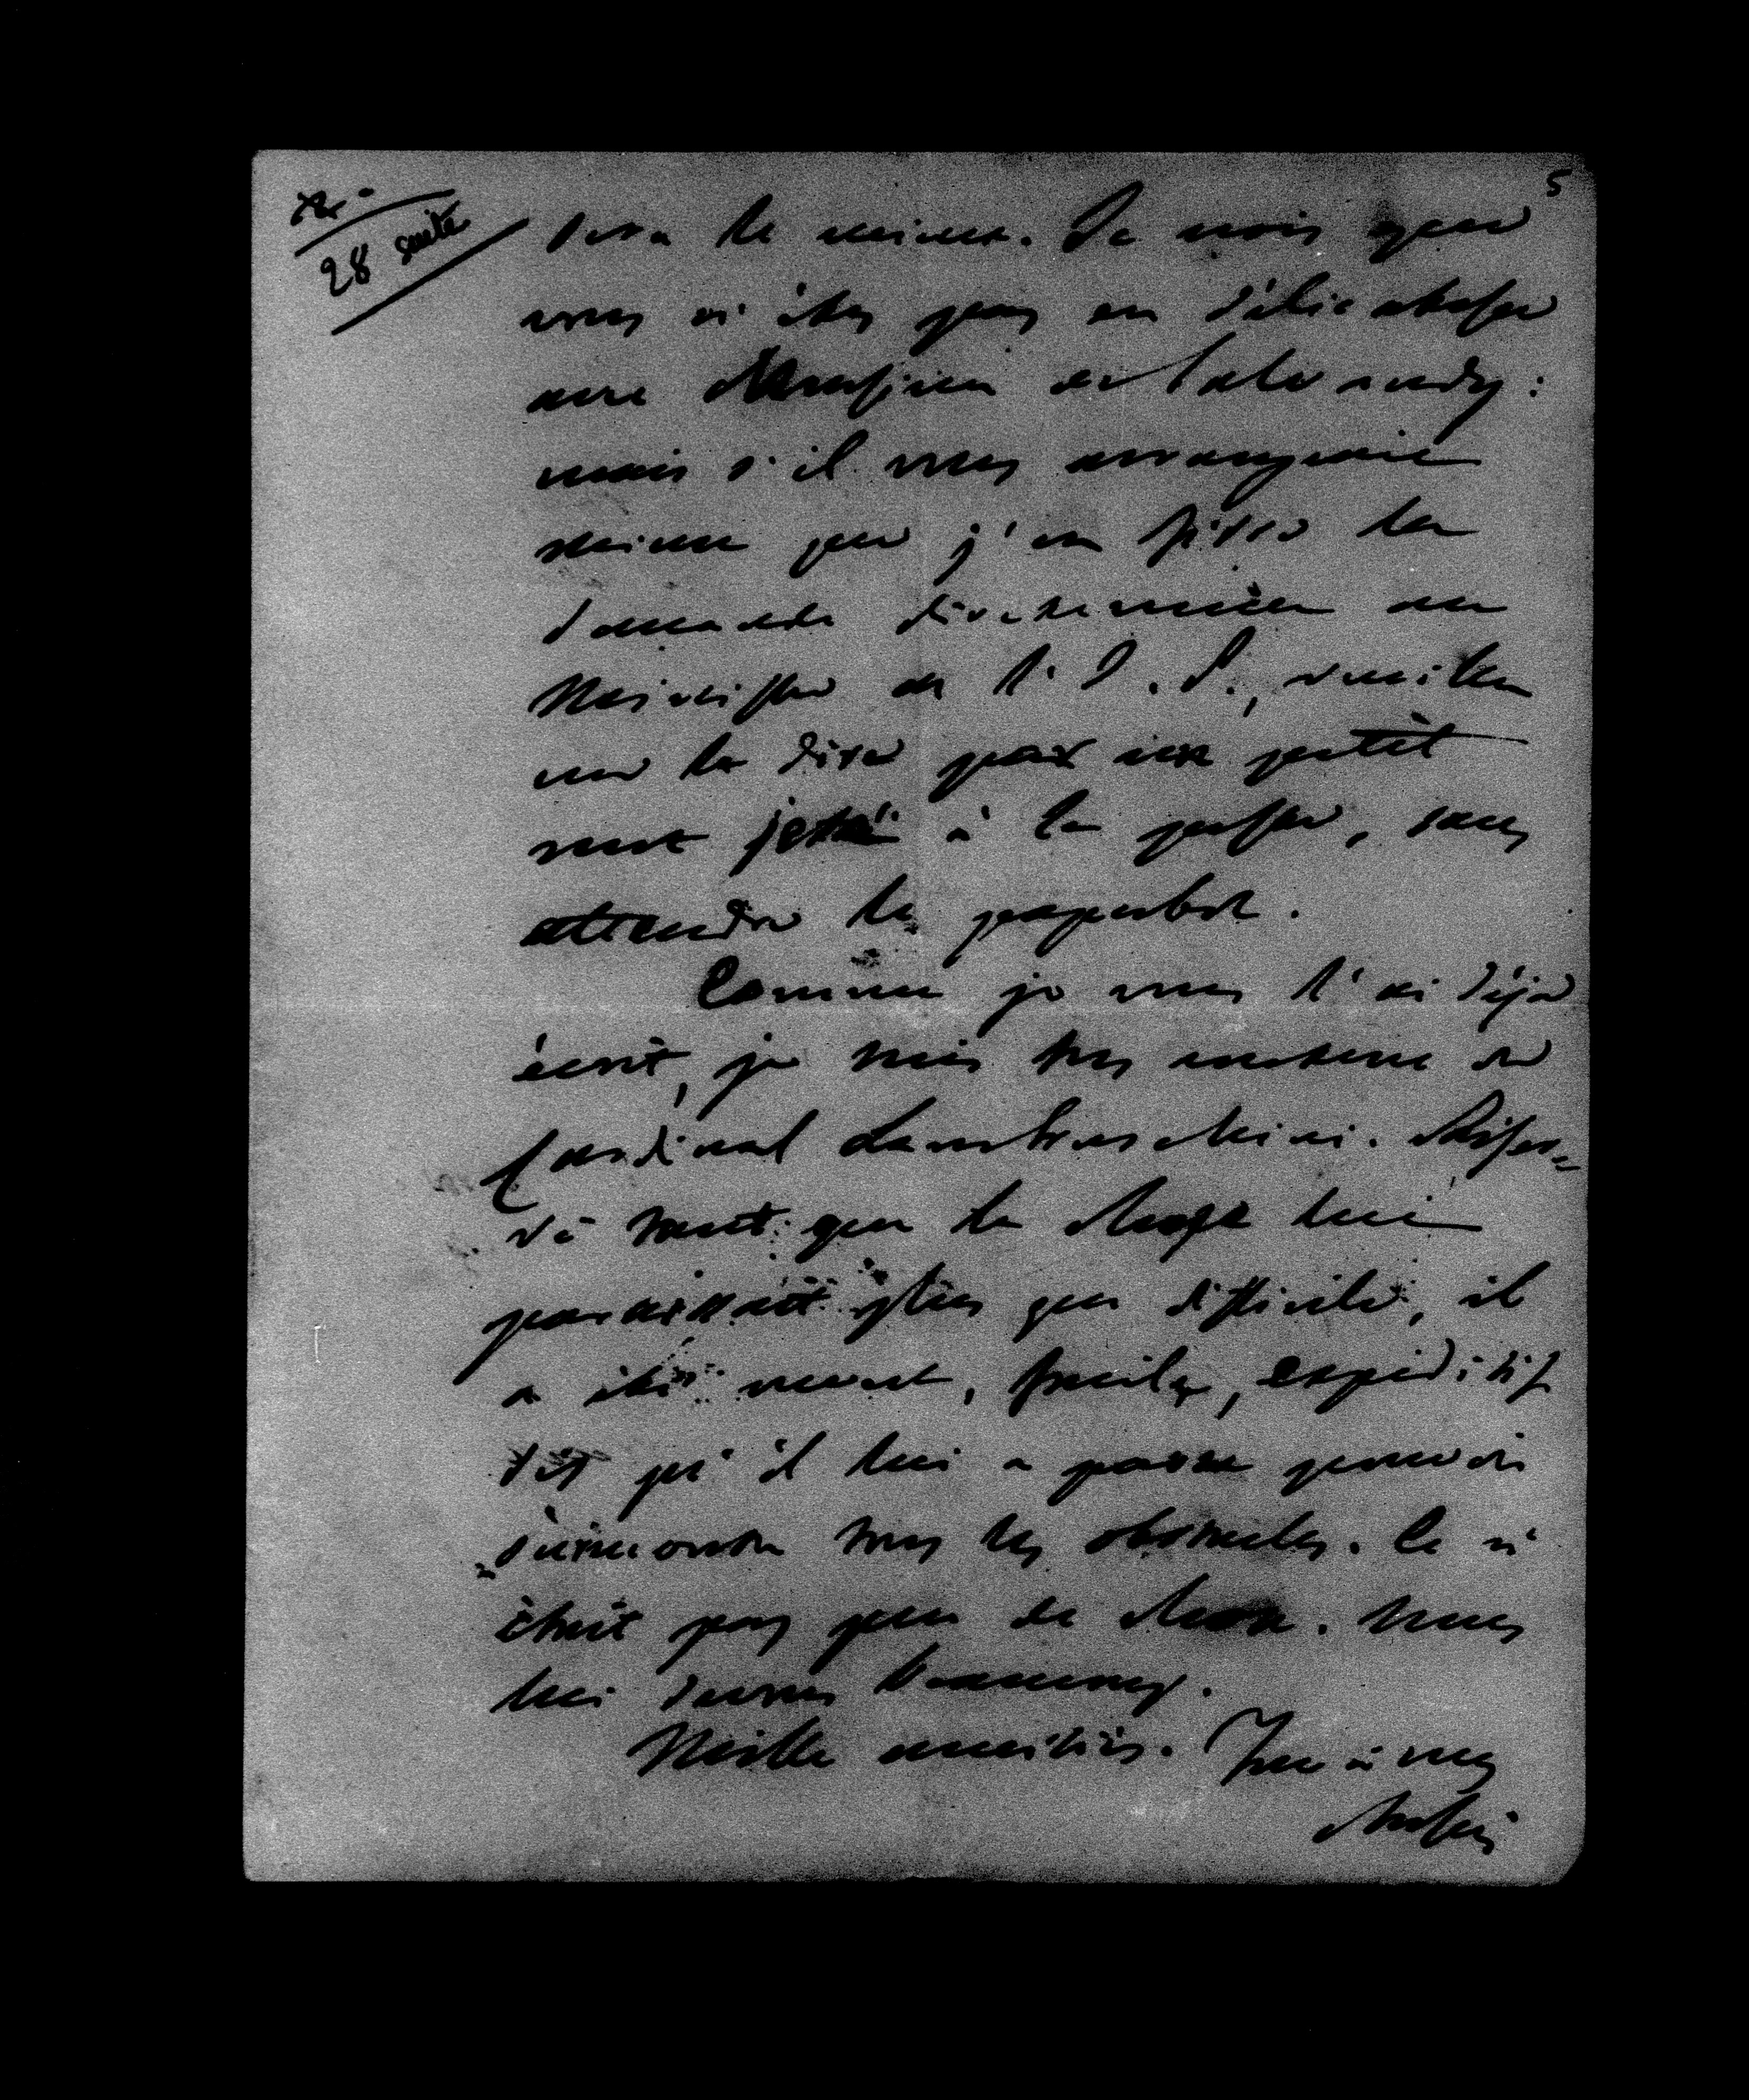 5
28 suite
sera le mieux. Je crois que
vous n'êtes pas en délicatesse
avec Monsieur de Salvandy:
mais s'il vous arrangeait
mieux que j'en fisse la
demande directement au
Ministre de l'I. P., veuillez
me le dire par un petit
mot jeté à la poste, sans
attendre le paquebot.
Comme je vous l'ai déjà
écrit, je suis très content du
Cardinal Lambruschini.
tant que la chose lui
paraissait plus que difficile, il
a été muet, facile, expéditif
dès qu'il lui a paru pouvoir
surmonter tous les obstacles. Ce n'
était pas peu de chose. Nous
lui devons beaucoup.
Mille amitiés. Tout à vous
Rossi